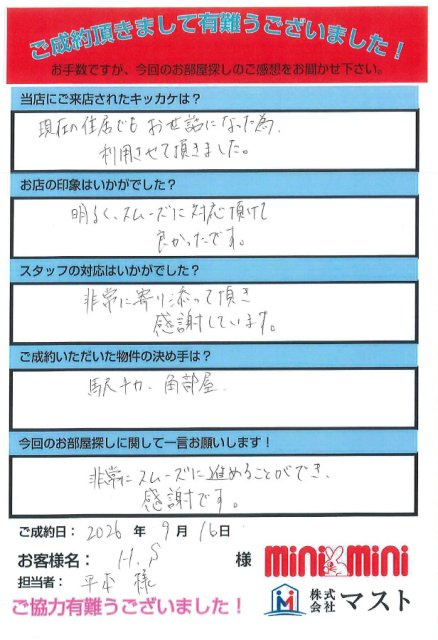 ご成約頂きまして有難うございました！
お手数ですが、今回のお部屋探しのご感想をお聞かせ下さい。
当店にご来店されたキッカケは？
現在の住居でもお世話になった為、
利用させて頂きました。
お店の印象はいかがでした？
明るく、スムーズに対応頂けて
良かったです。
スタッフの対応はいかがでした？
非常に寄り添って頂き
感謝しています。
ご成約いただいた物件の決め手は？
駅チカ、角部屋
今回のお部屋探しに関して一言お願いします！
非常にスムーズに進めることができ、
感謝です。
ご成約日： 2026 年 9 月 16 日
お客様名： H.S 様
担当者： 平本 様
mini mini
株式会社 マスト
ご協力有難うございました！